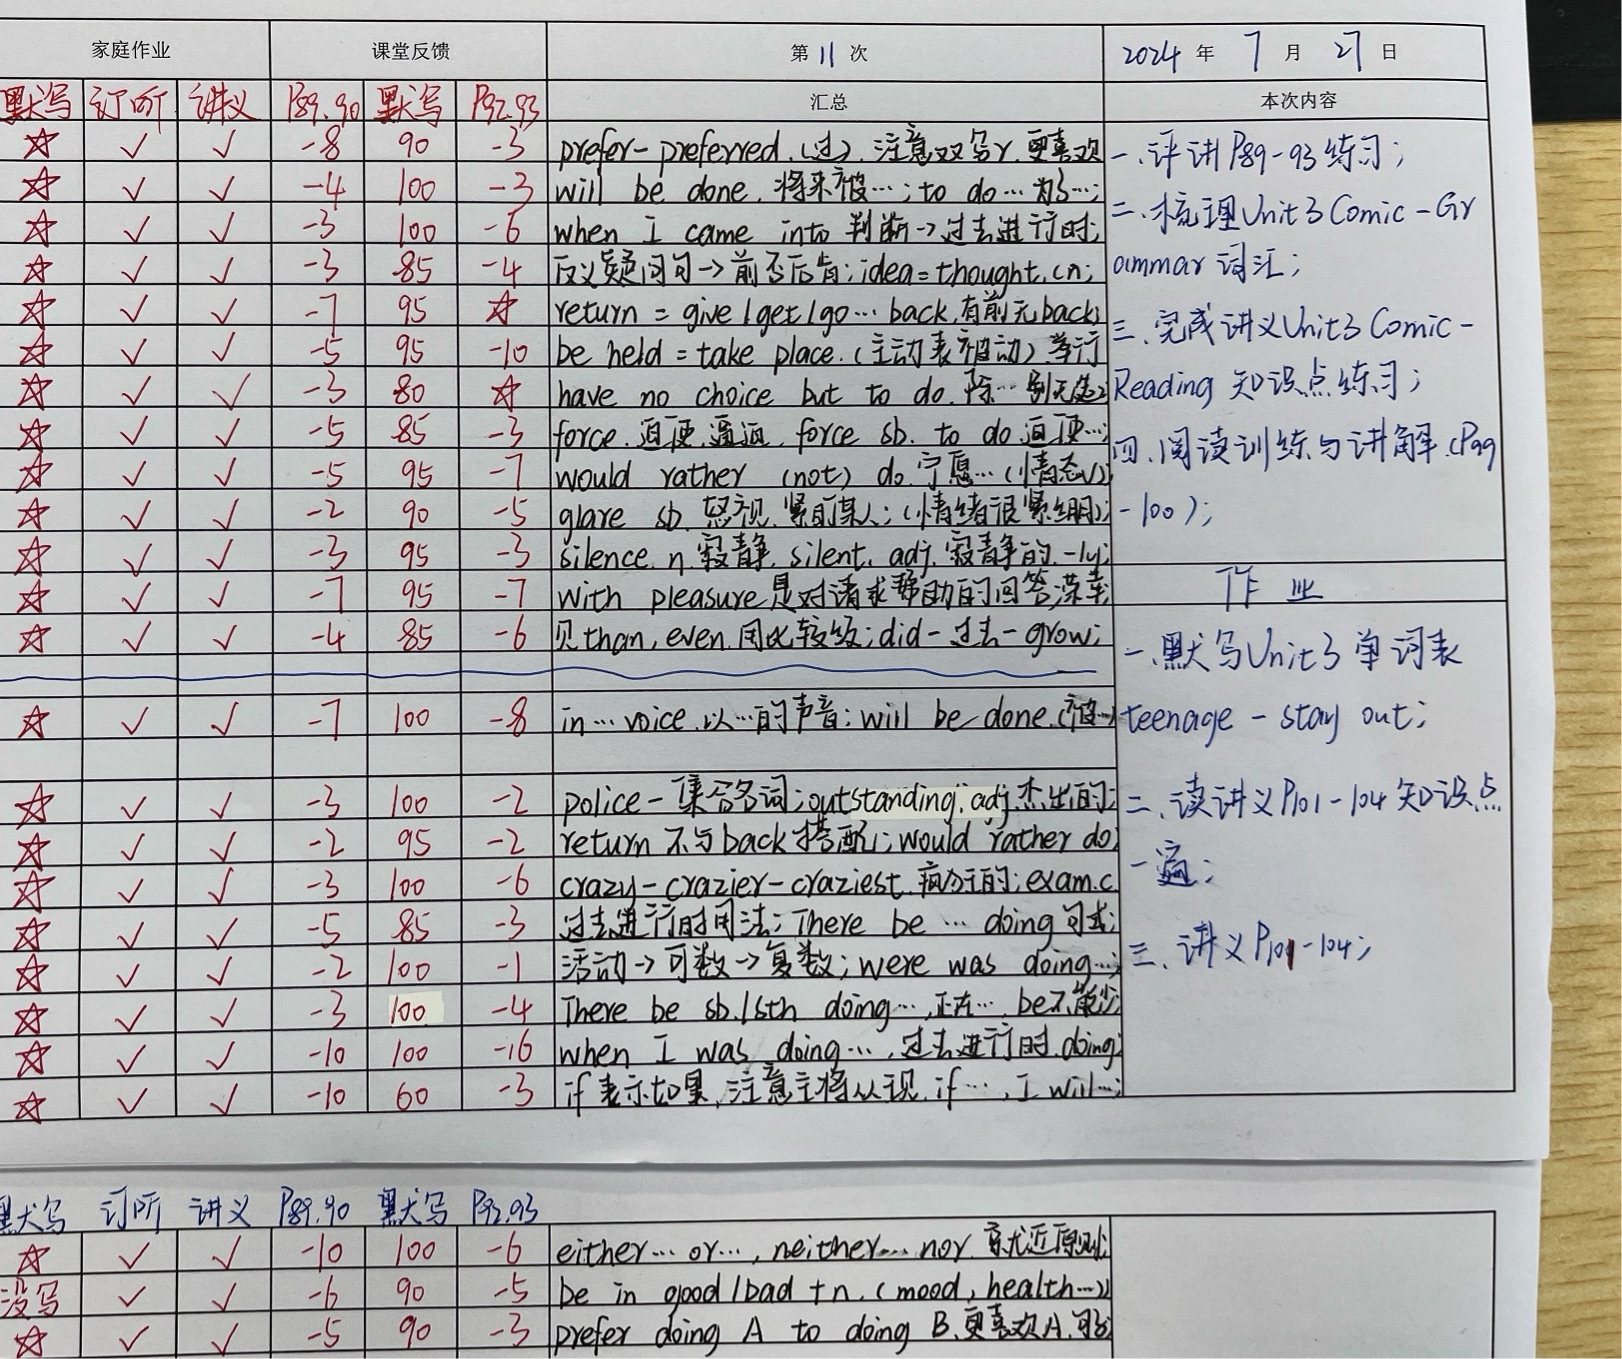 家庭作业 课堂反馈 第 11 次 2024 年 7 月 27 日
默写 订听 讲义 P89.90 默写 P92.93 汇总 本次内容
☆ ✓ ✓ -8 90 -3 prefer-preferred.(过).注意双写r.更喜欢
☆ ✓ ✓ -4 100 -3 will be done.将来被…;to do…为了…;
☆ ✓ ✓ -3 100 -6 when I came into 判断→过去进行时;
☆ ✓ ✓ -3 85 -4 反义疑问句→前否后肯;idea=thought.cn;
☆ ✓ ✓ -7 95 ☆ return = give/get/go…back.有前无back;
☆ ✓ ✓ -5 95 -10 be held = take place.(主动表被动)举行
☆ ✓ ✓ -3 80 ☆ have no choice but to do.除…别无选
☆ ✓ ✓ -5 85 -3 force.迫使.逼迫.force sb. to do.迫使…;
☆ ✓ ✓ -5 95 -7 would rather (not) do.宁愿…(情态V)
☆ ✓ ✓ -2 90 -5 glare sb.怒视.紧盯某人;(情绪很紧绷);
☆ ✓ ✓ -3 95 -3 silence.n.寂静.silent.adj.寂静的.-ly;
☆ ✓ ✓ -7 95 -7 with pleasure是对请求帮助的回答.荣幸
☆ ✓ ✓ -4 85 -6 见than,even.用比较级;did-过去-grow;
☆ ✓ ✓ -7 100 -8 in…voice.以…的声音;will be done.(被…)
☆ ✓ ✓ -3 100 -2 police-集合名词;outstanding.adj.杰出的;
☆ ✓ ✓ -2 95 -2 return 不与back搭配;would rather do;
☆ ✓ ✓ -3 100 -6 crazy-crazier-craziest.疯狂的;exam.c
☆ ✓ ✓ -5 85 -3 过去进行时用法;There be … doing句式;
☆ ✓ ✓ -2 100 -1 活动→可数→复数;were was doing…;
☆ ✓ ✓ -3 100 -4 There be sb./sth doing….正在….be不能少
☆ ✓ ✓ -10 100 -16 when I was doing….过去进行时.doing;
☆ ✓ ✓ -10 60 -3 if表示如果.注意主将从现.if…,I will…;
一.评讲P89-93练习;
二.梳理Unit3 Comic-Gr
ammar词汇;
三.完成讲义Unit3 Comic-
Reading 知识点练习;
四.阅读训练与讲解.(P99
-100);
作业
一.默写Unit3 单词表
teenage - stay out;
二.读讲义P101-104知识点
一遍;
三.讲义P101-104;
默写 订听 讲义 P89.90 默写 P92.93
☆ ✓ ✓ -10 100 -6 either…or…,neither…nor.就近原则;
没写 ✓ ✓ -6 90 -5 be in good/bad +n.(mood,health…)
☆ ✓ ✓ -5 90 -3 prefer doing A to doing B.更喜欢A.